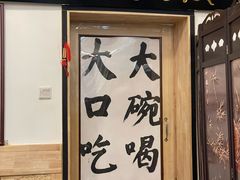 大碗喝
大口吃